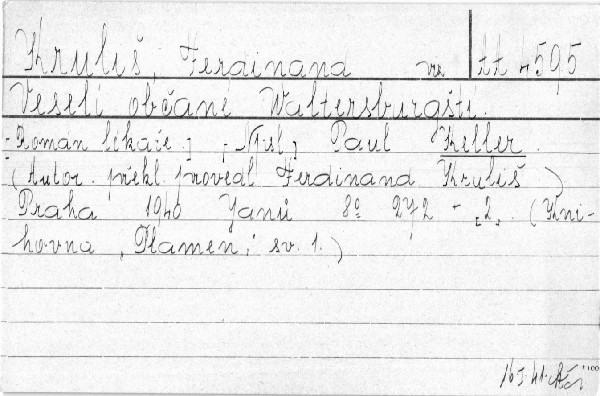 Kruliš, Ferdinand tt 4595
Veselí občané Waltersburgští.
[Roman lékaře.] [Npsl.] Paul Keller.
(Autor. překl. provedl Ferdinand Kruliš)
Praha 1940 Janů 8° 272 - [2]. (Kni-
hovna „Plamen“, sv. 1.)